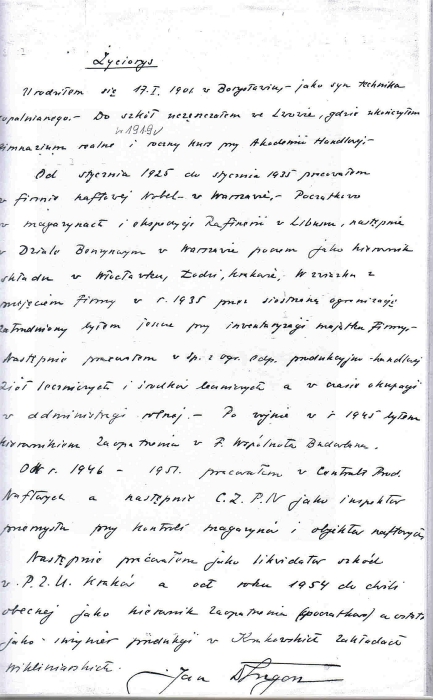 Życiorys
Urodziłem się 17.I.1901 w Borysławiu,- jako syn technika
kopalnianego.- Do szkół uczęszczałem we Lwowie, gdzie ukończyłem
w 1919 r
gimnazium realne i roczny kurs przy Akademii Handlowej.-
Od stycznia 1925 do stycznia 1935 pracowałem
w firmie naftowej Nobel- w Warszawie,- Początkowo
w magazynach i ekspedycji Rafinerii w Libuszy, następnie
w Dziale Benzynowym w Warszawie poczem jako kierownik
składu w Włocławku, Łodzi, Krakowie. W związku z
przejęciem firmy w r. 1935 przez siostrzaną organizację
zatrudniony byłem jeszcze przy inwentaryzacji majątku firmy.-
Następnie pracowałem w sp. z ogr. odp. produkcyjno-handlowej
ziół leczniczych i środków leczniczych a w czasie okupacji
w administracji rolnej.- Po wojnie w r. 1945 byłem
kierownikiem zaopatrzenia w P. Wspólnota Budowlana.
Od r. 1946 - 1951. pracowałem w Centrali Prod.
Naftowych a następnie C.Z.P.N jako inspektor
przemysłu przy kontroli magazynów i objektów naftowych
Następnie pracowałem jako likwidator szkód
w P.Z.U. Kraków a od roku 1954 do chwili
obecnej jako kierownik zaopatrzenia (początkowo) a ostatnio
jako inżynier produkcji w Krakowskich Zakładach
Wikliniarskich.
Jan